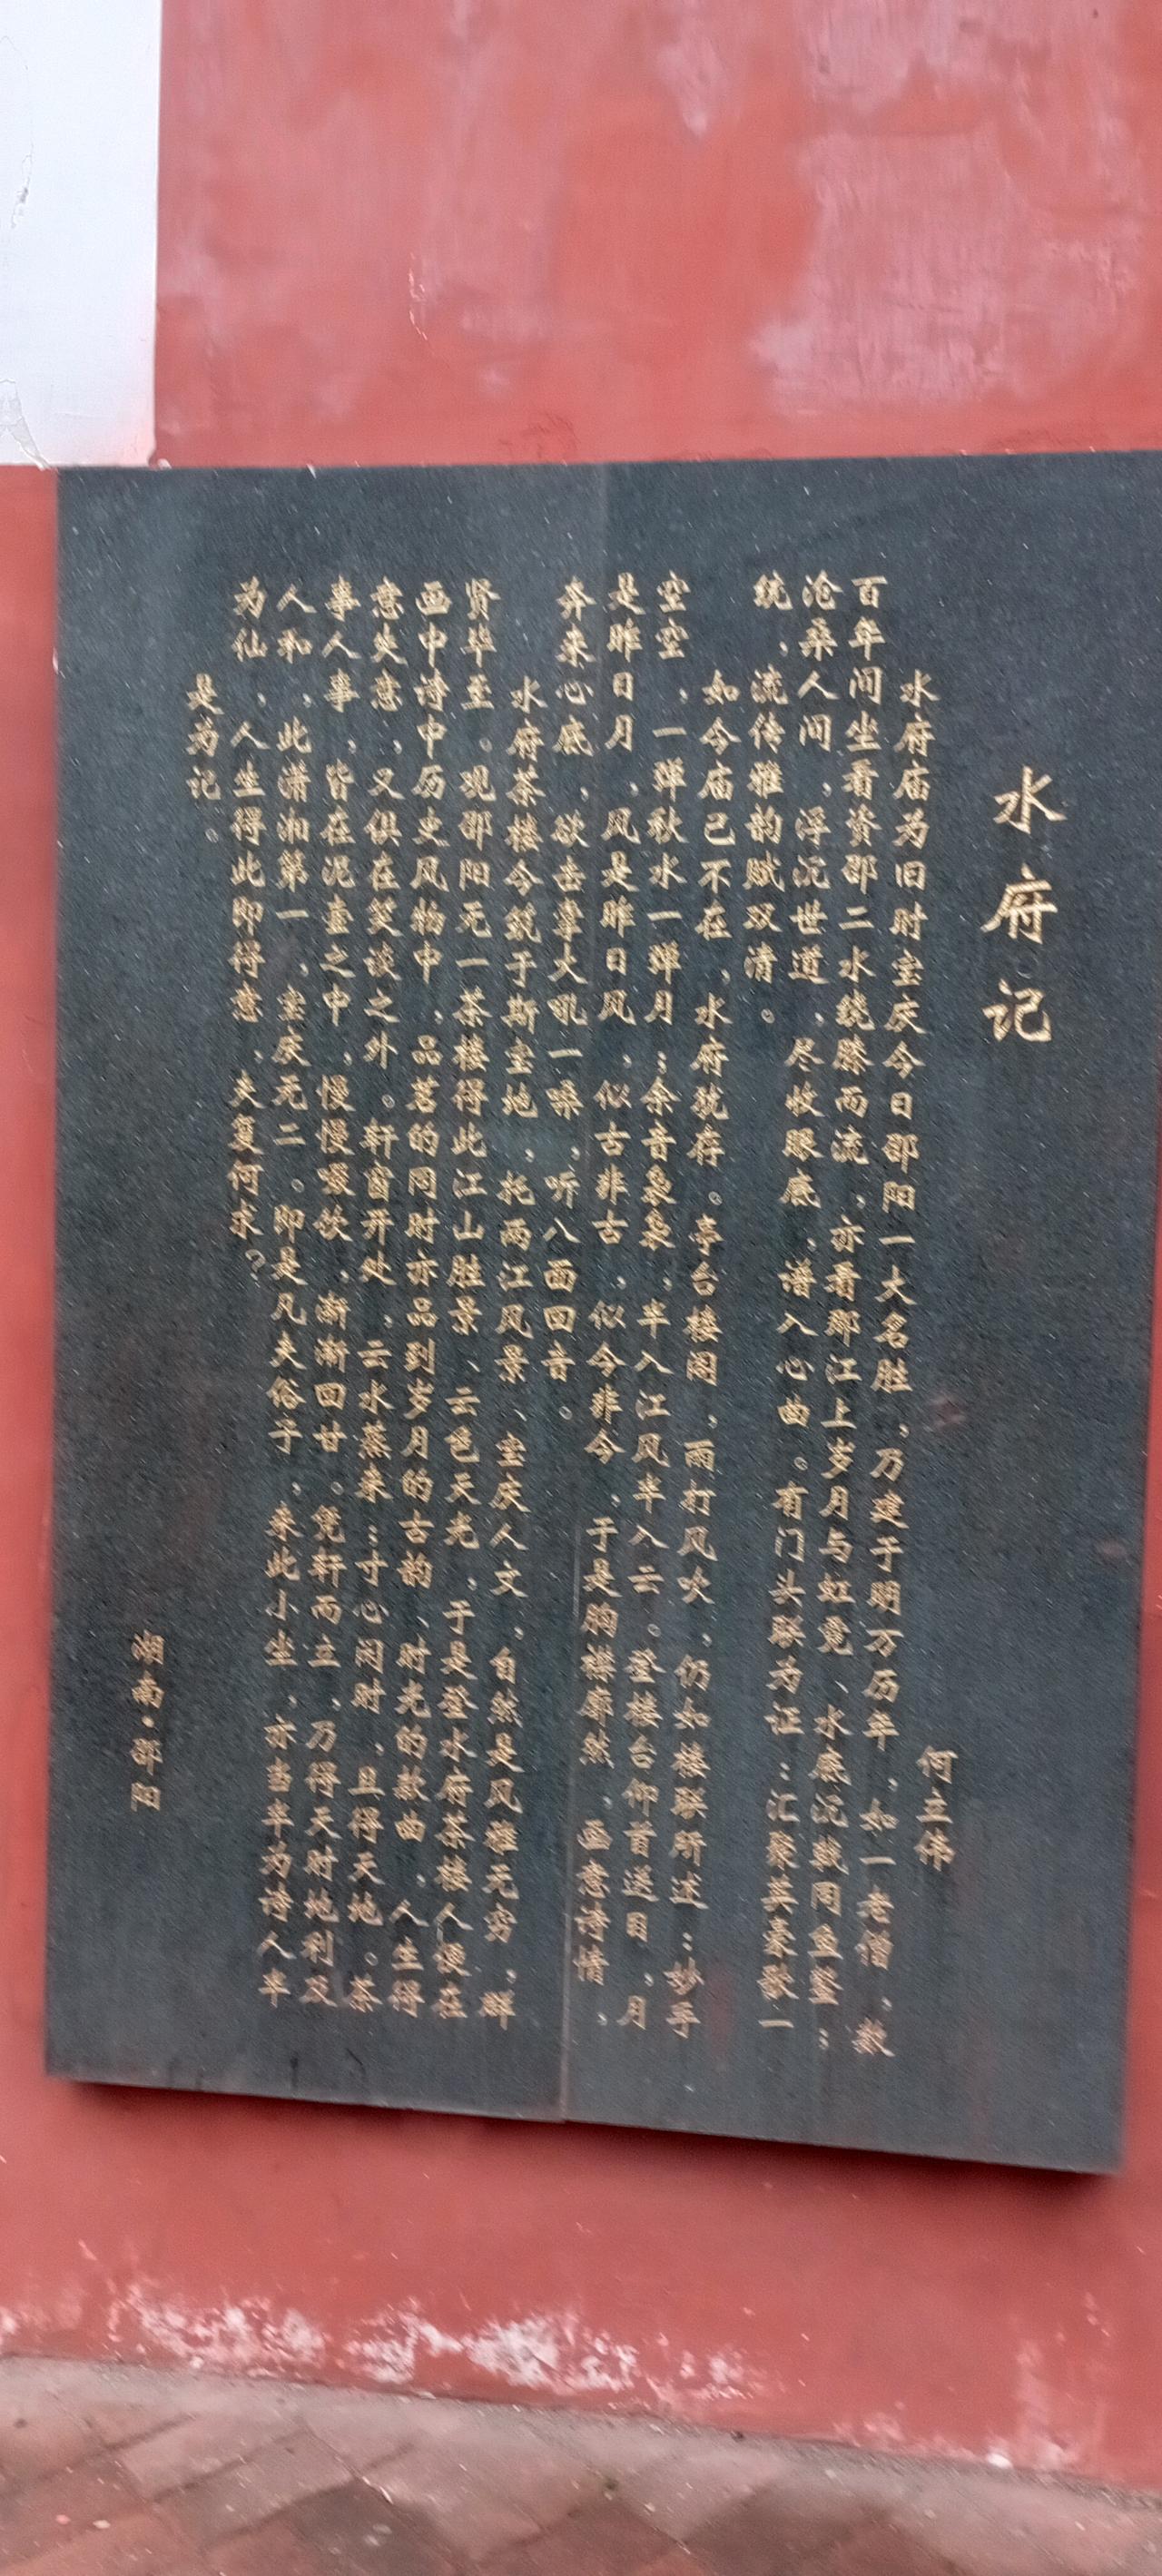 水府记
何立伟
水府庙为旧时宝庆今日邵阳一大名胜，万建于明万历年，如一老僧，数
百年间坐看资邵二水绕膝而流，亦看那江上岁月与虹竞、水底沉戟同鱼鉴；
沧桑人间，浮沉世道，尽收眼底，谱入心曲。有门头联为证：汇聚英豪歌一
统，流传雅韵赋双清。
如今庙已不在，水府犹存。亭台楼阁，雨打风吹，仍如楼联所述：妙手
空空，一弹秋水一弹月；余音袅袅，半入江风半入云。登楼台仰首送目，月
是昨日月，风是昨日风，似古非古，似今非今，于是胸襟廓然，画意诗情，
奔来心底，欲击掌大吼一嗓，听八面回音。
水府茶楼今筑于斯宝地，托两江风景、宝庆人文，自然是风雅无穷，群
贤毕至。观邵阳无一茶楼得此江山胜景、云色天光，于是登水府茶楼人便在
画中诗中历史风物中，品茗的同时亦品到岁月的古韵、时光的款曲，人生得
意失意，又俱在笑谈之外。轩窗开处，云水荡来；寸心闲时，且得天地。茶
事人事，皆在泥壶之中，慢慢啜饮，渐渐回甘。凭轩而立，万得天时地利及
人和，此潇湘第一，宝庆无二。即是凡夫俗子，来此小坐，亦当半为诗人半
为仙，人生得此即得意，夫复何求？
是为记。
湖南·邵阳